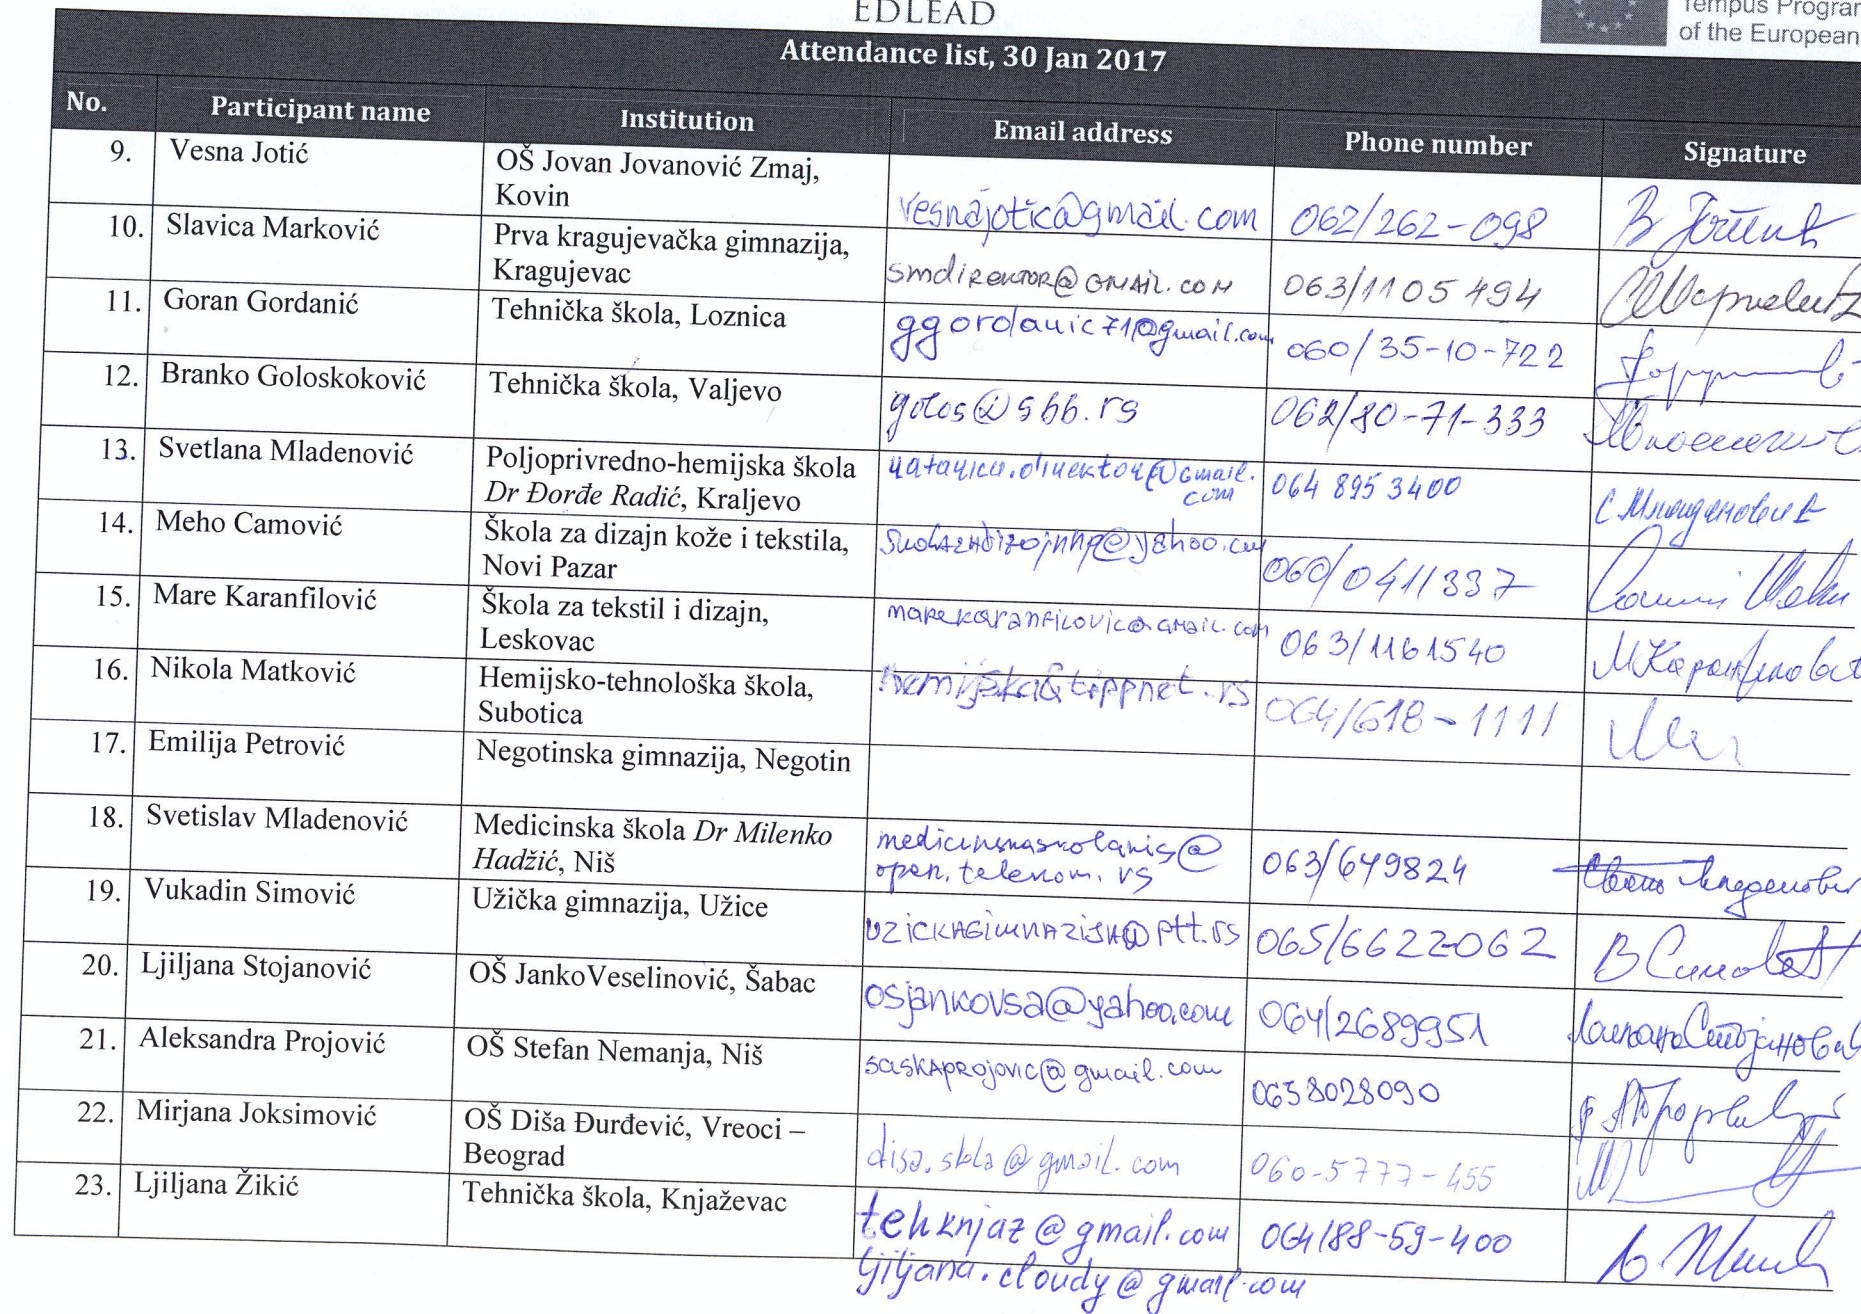 EDLEAD
Tempus Program
of the European
Attendance list, 30 Jan 2017
No. Participant name Institution Email address Phone number Signature
9. Vesna Jotić OŠ Jovan Jovanović Zmaj,
Kovin vesnajotic@gmail.com 062/262-098
10. Slavica Marković Prva kragujevačka gimnazija,
Kragujevac smdirektor@GMAIL.COM 063/1105 494
11. Goran Gordanić Tehnička škola, Loznica ggordanic71@gmail.com 060/35-10-722
12. Branko Goloskoković Tehnička škola, Valjevo golos@sbb.rs 062/80-71-333
13. Svetlana Mladenović Poljoprivredno-hemijska škola
Dr Đorđe Radić, Kraljevo 064 895 3400 С Младеновић
14. Meho Camović Škola za dizajn kože i tekstila,
Novi Pazar 060/0411337
15. Mare Karanfilović Škola za tekstil i dizajn,
Leskovac marekaranfilovic@gmail.com 063/1161540 М Каранфиловић
16. Nikola Matković Hemijsko-tehnološka škola,
Subotica hemijska@tippnet.rs 064/618-1111
17. Emilija Petrović Negotinska gimnazija, Negotin
18. Svetislav Mladenović Medicinska škola Dr Milenko
Hadžić, Niš medicinskaskolanis@
open.telekom.rs 063/649824
19. Vukadin Simović Užička gimnazija, Užice UZICKAGIMNAZIJA@ptt.rs 065/6622062 В Симовић
20. Ljiljana Stojanović OŠ JankoVeselinović, Šabac osjankovsa@yahoo.com 064/2689951 Љиљана Стојановић
21. Aleksandra Projović OŠ Stefan Nemanja, Niš saskaprojovic@gmail.com 0658028090
22. Mirjana Joksimović OŠ Diša Đurđević, Vreoci –
Beograd disa.skola@gmail.com 060-5777-455
23. Ljiljana Žikić Tehnička škola, Knjaževac tehknjaz@gmail.com 064/88-59-400
ljiljana.cloudy@gmail.com